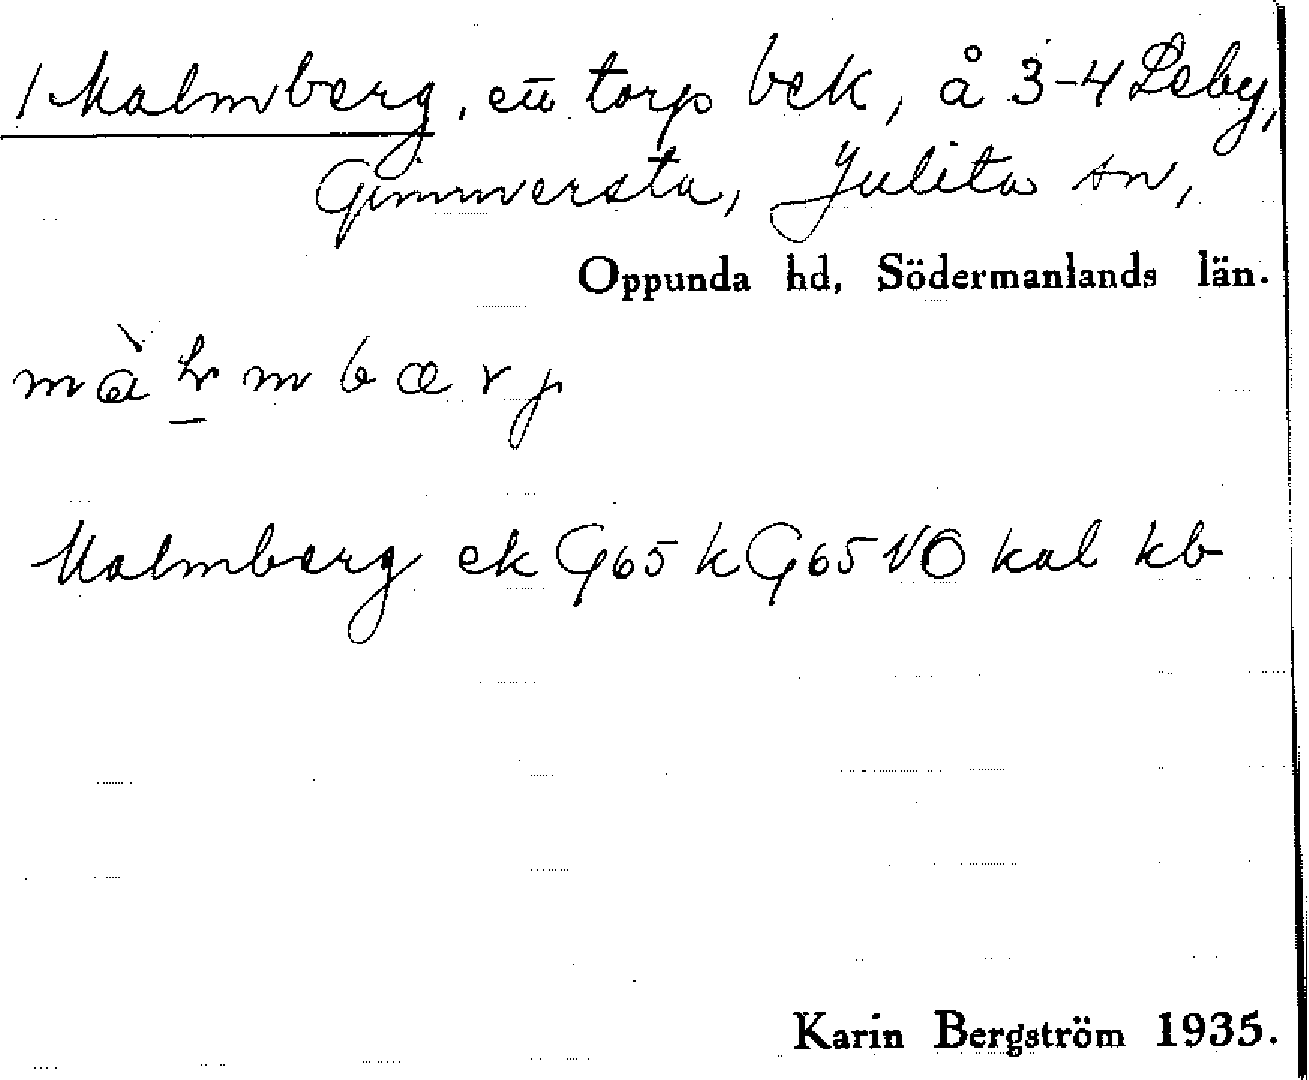 1 Malmberg, ett torp bek, å 3-4 Leby,
Gimmersta, Julita sn,
Oppunda hd, Södermanlands län.
Malmberg ek G65 k G65 VO kal kb
Karin Bergström 1935.